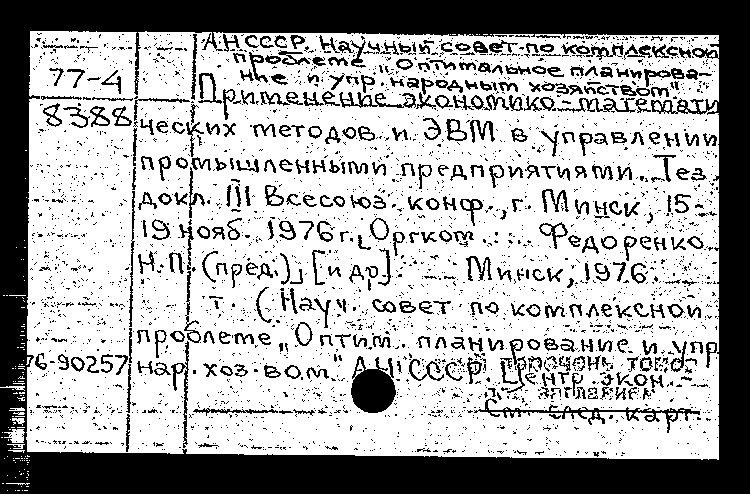 АН СССР. Научный совет по комплексной
проблеме „Оптимальное планирова-
ние и упр. народным хозяйством"
77-4
Применение экономико-математи
8388
ческих методов и ЭВМ в управлении
промышленными предприятиями. Тез.
докл. III Всесоюз. конф., г. Минск, 15-
19 нояб. 1976 г. [Оргком.: Федоренко
Н.П. (пред.)] [и др]. — Минск, 1976.
т. (Науч. совет по комплексной
проблеме „Оптим. планирование и упр
76-90257 нар. хоз-вом" АН СССР. Центр. экон.-
перечень томов
заглавием
См. след. карт.